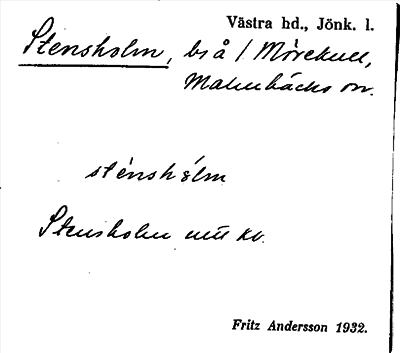 Västra hd., Jönk. l.
Stensholm, bs å / Mörekull,
Malmbäcks sn.
sténshòlm
Stensholm utt kv.
Fritz Andersson 1932.